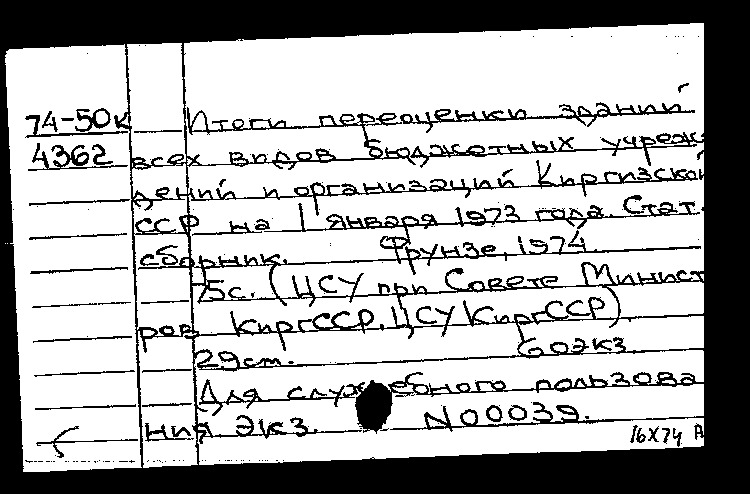 74-50к Итоги переоценки зданий
4362 всех видов бюджетных учреж
дений и организаций Киргизской
ССР на 1 января 1973 года. Стат.
сборник. Фрунзе, 1974.
75с. (ЦСУ при Совете Минист
ров КиргССР. ЦСУ КиргССР)
29см. 60экз.
Для служебного пользова
ния Экз. N00039.
16X74 А